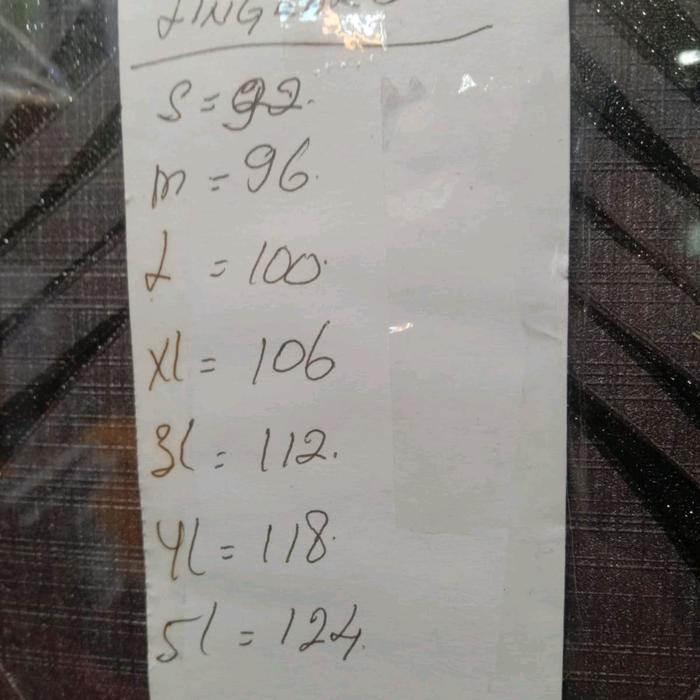 S = 92.
m = 96.
L = 100.
XL = 106
3L = 112.
4L = 118.
5L = 124.